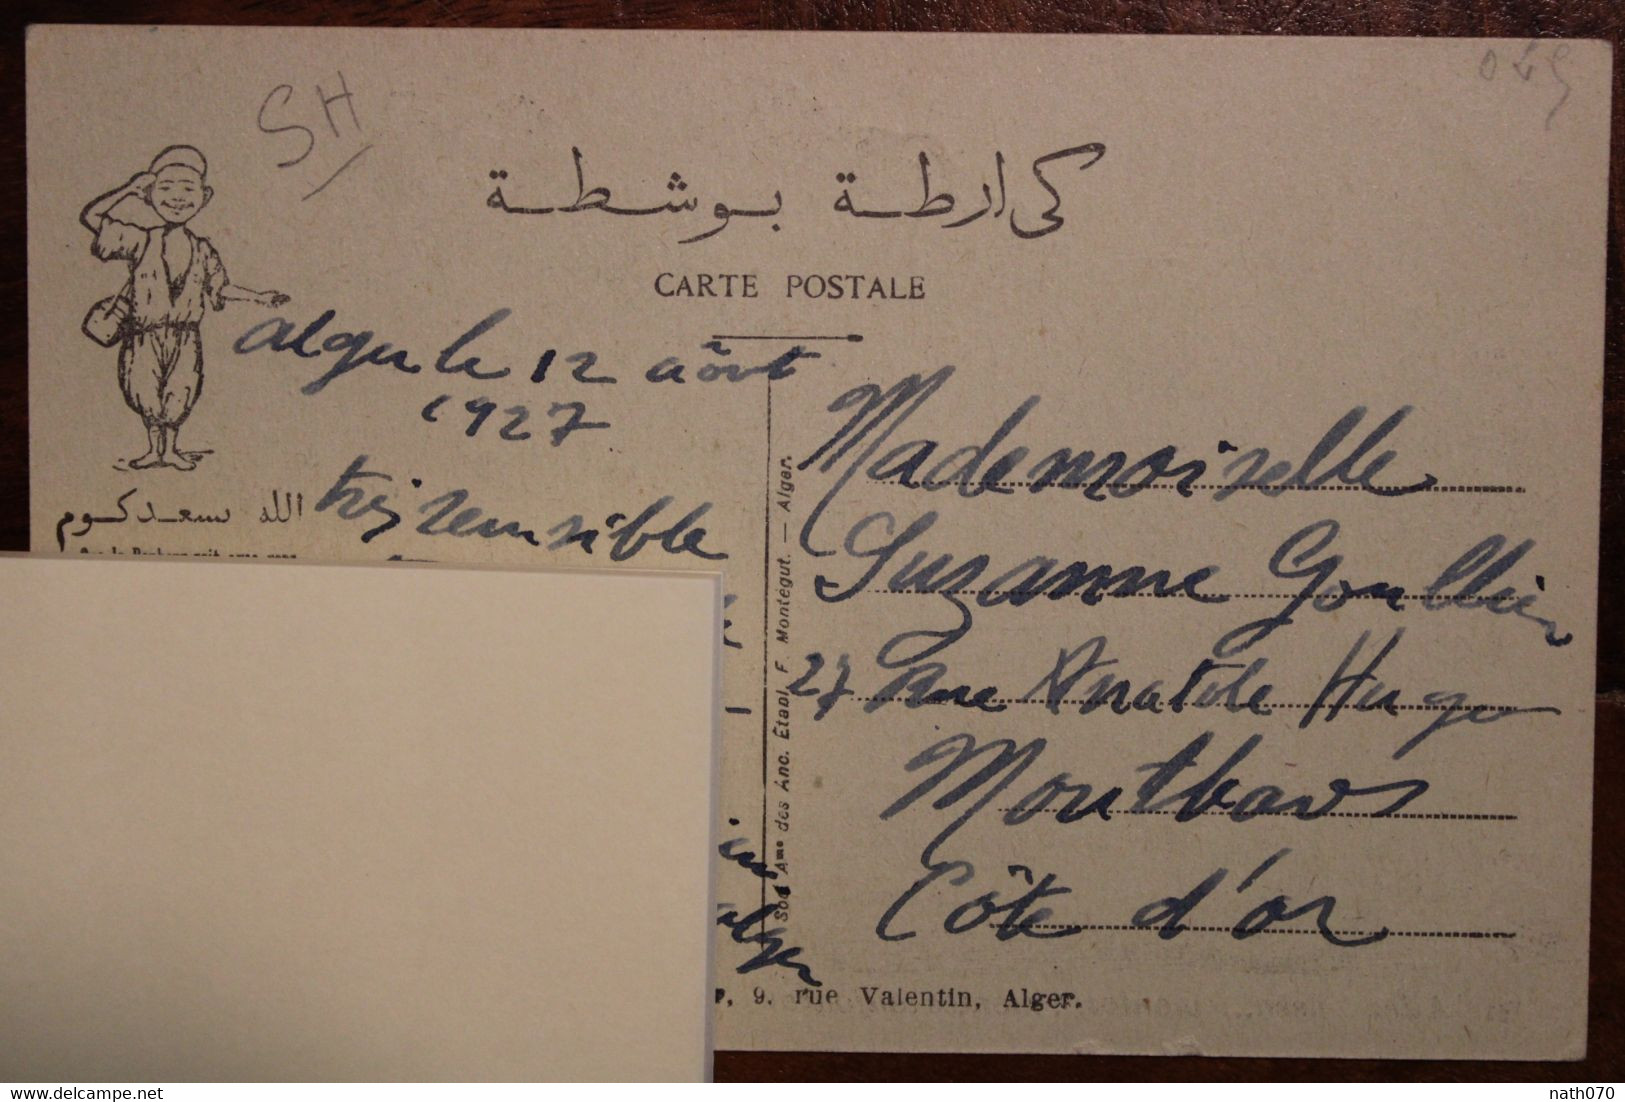 SH
049
كارطة بوشطة
CARTE POSTALE
alger le 12 aôut
1927
الله يسعدكوم
très sensible
Mademoiselle
Suzanne Goulblier
27 Rue Anatole Hugo
Montbars
Côte d'or
alger
Soc. Ame des Anc. Etabl. F. Montégut. — Alger.
9, rue Valentin, Alger.
delcampe.net
nath070